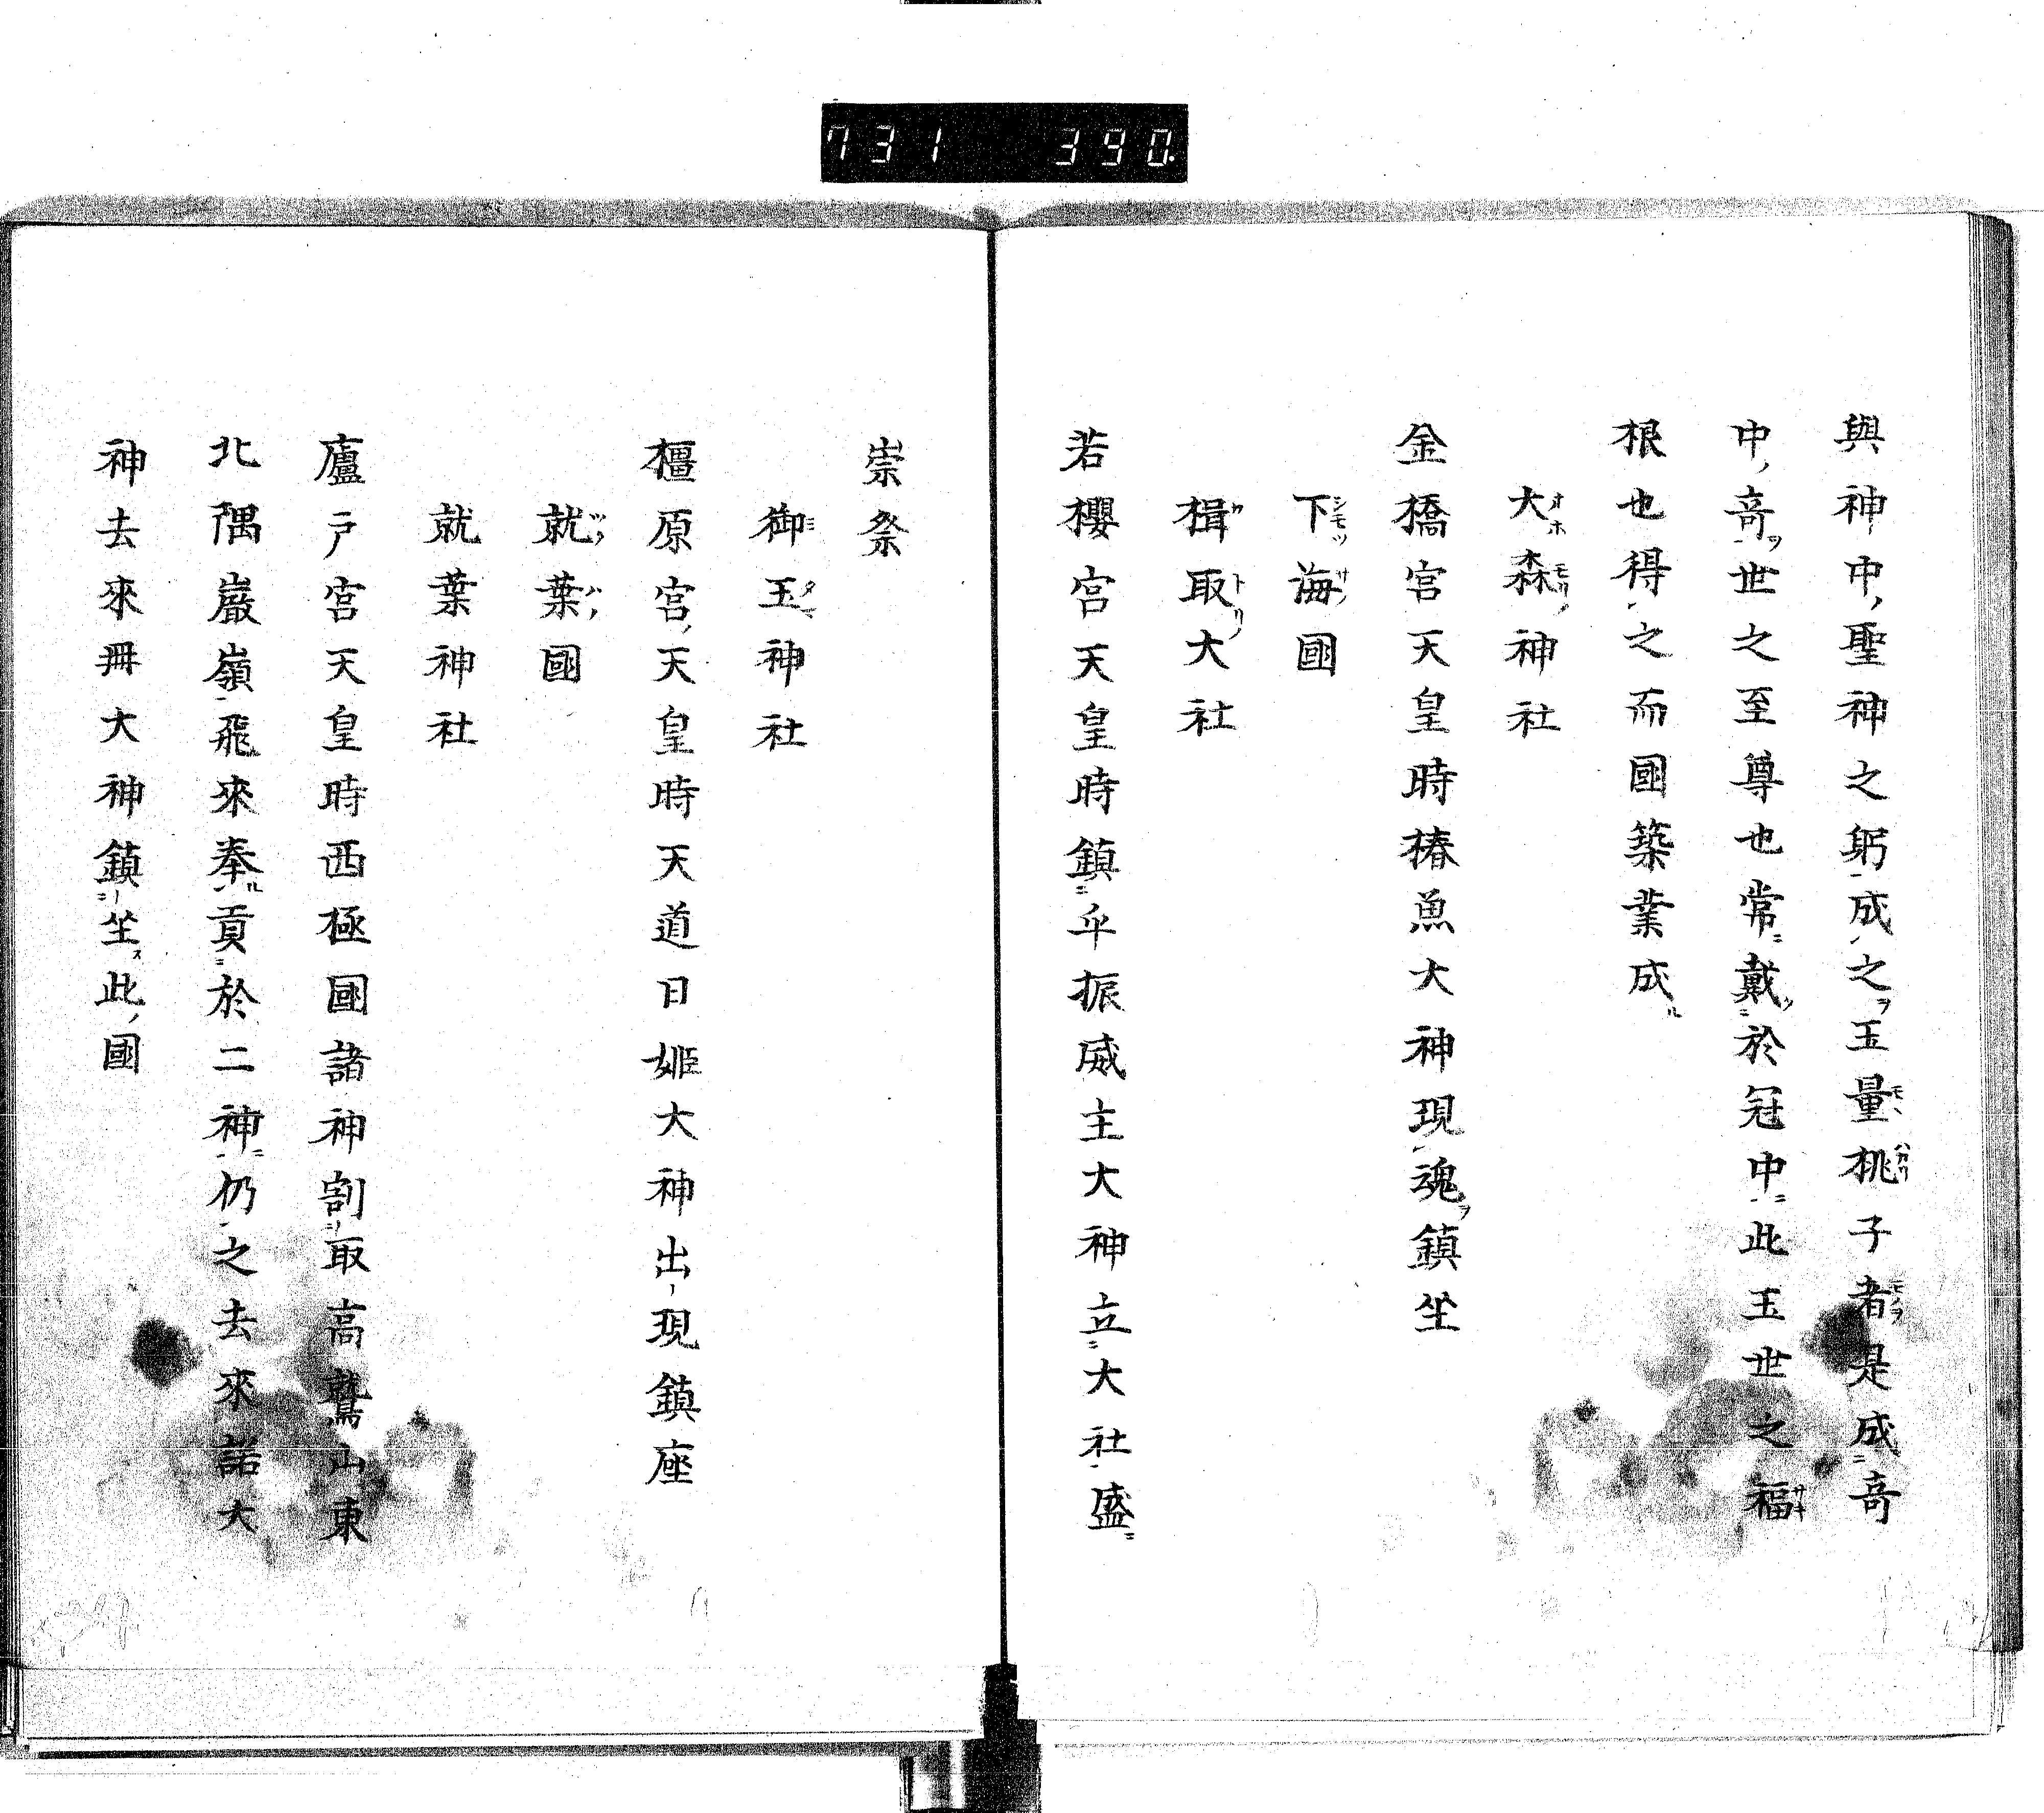 731 390
與神中聖神之躬成之玉量桃子者是成奇
中奇世之至尊也常戴於冠中此玉世之福
根也得之而國築業成
大森神社
金橋宮天皇時椿魚大神現魂鎮坐
下海國
楫取大社
若櫻宮天皇時鎮平振威主大神立大社盛
崇祭
御玉神社
橿原宮天皇時天道日姬大神出現鎮座
就葉國
就葉神社
廬戸宮天皇時西極國諸神割取高鷲山東
北隅巖嶺飛來奉貢於二神仍之去來諾大
神去來冊大神鎮坐此國